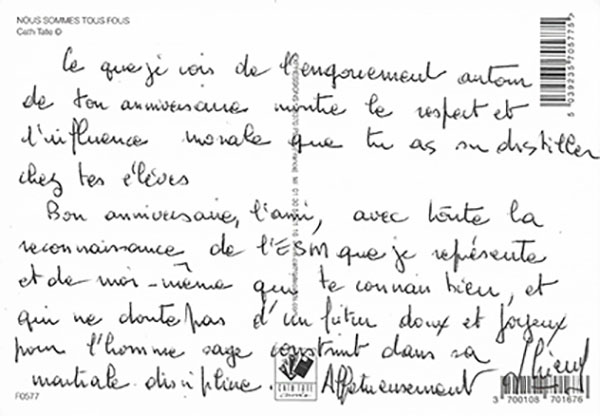 NOUS SOMMES TOUS FOUS
Cath Tate ©
Ce que je vois de l'engouement autour
de ton anniversaire montre le respect et
l'influence morale que tu as su distiller
chez tes élèves
Bon anniversaire, l'ami, avec toute la
reconnaissance de l'ESM que je représente
et de moi-même qui te connais bien, et
qui ne doute pas d'un futur doux et joyeux
pour l'homme sage construit dans sa
martiale discipline. Affectueusement Thierry
F0577
CATH TATE
5 039235 705775
3 700108 701676